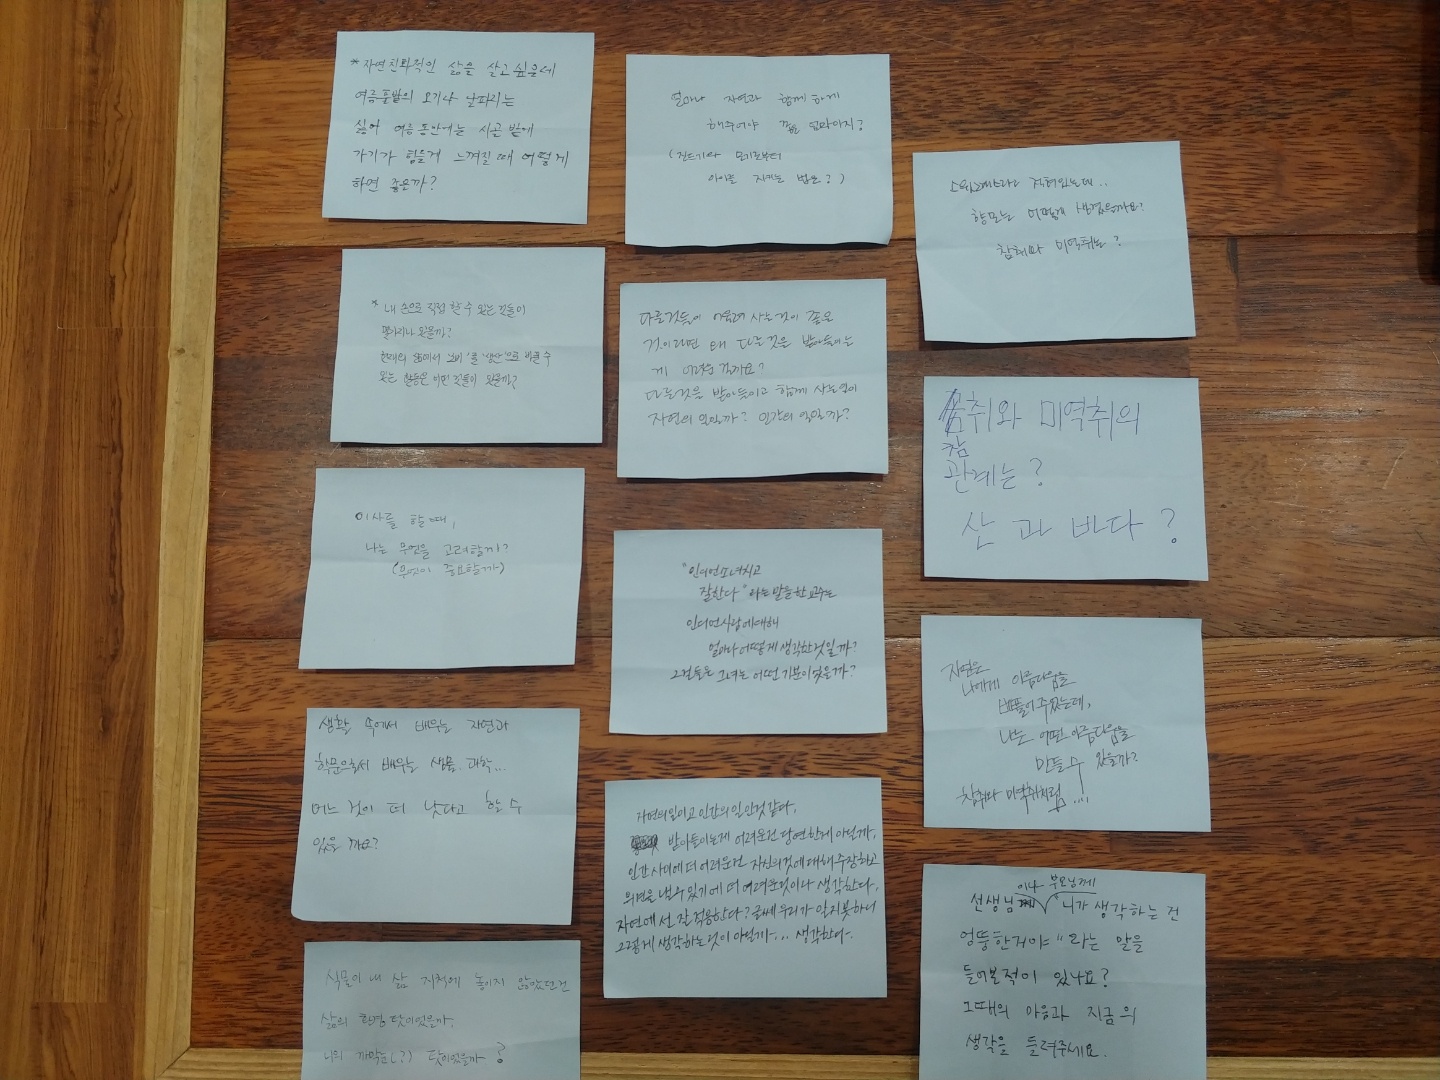 *자연친화적인 삶을 살고싶은데
여름풀밭의 모기나 날파리는
싫어 여름동안에는 시골 밭에
가기가 힘들게 느껴질때 어떻게
하면 좋을까?
* 내 손으로 직접 할 수 있는 것들이
몇가지나 있을까?
현재의 삶에서 소비'를 '생산'으로 바꿀 수
있는 활동은 어떤 것들이 있을까?
이사를 할 때,
나는 무엇을 고려할까?
(무엇이 중요할까)
생활 속에서 배우는 자연과
학문으로서 배우는 생물. 과학...
어느 것이 더 낫다고 할 수
있을까요?
식물이 내 삶 지척에 놓이지 않았던건
삶의 환경 탓이었을까,
나의 까막눈(?) 탓이었을까?
얼마나 자연과 함께 하게
해주어야 좋은 엄마이지?
(진드기와 모기로부터
아이를 지키는 법은?)
다른것들이 어울려 사는것이 좋은
것이라면 왜 다른것은 받아들이는
게 어려운 걸까요?
다른것을 받아들이고 함께 사는일이
자연의 일일까? 인간의 일일까?
"인디언소녀치고
잘한다"라는 말을한 교수는
인디언사람에대해
얼마나 어떻게 생각한것일까?
그걸들은 그녀는 어떤 기분이었을까?
자연의일이고 인간의 일인것 같다,
받아들이는게 어려운건 당연한게 아닐까,
인간 사이에 더 어려운건 자신의것에 대해 주장하고
의견을 낼수 있기에 더 어려운것이나 생각한다,
자연에선 잘 적응한다? 글쎄 우리가 알지못하니
그렇게 생각하는것이 아닐까.... 생각한다.
향모는 어떻게 생겼을까요?
참취와 미역취는?
참취와 미역취의
관계는?
산과 바다?
자연은
나에게 아름다움을
만들어주었는데,
나는 어떤 아름다움을
만들 수 있을까?
참취와 미역취처럼....
선생님이나 부모님께 "니가 생각하는 건
엉뚱한거야"라는 말을
들어본적이 있나요?
그때의 마음과 지금의
생각을 들려주세요.